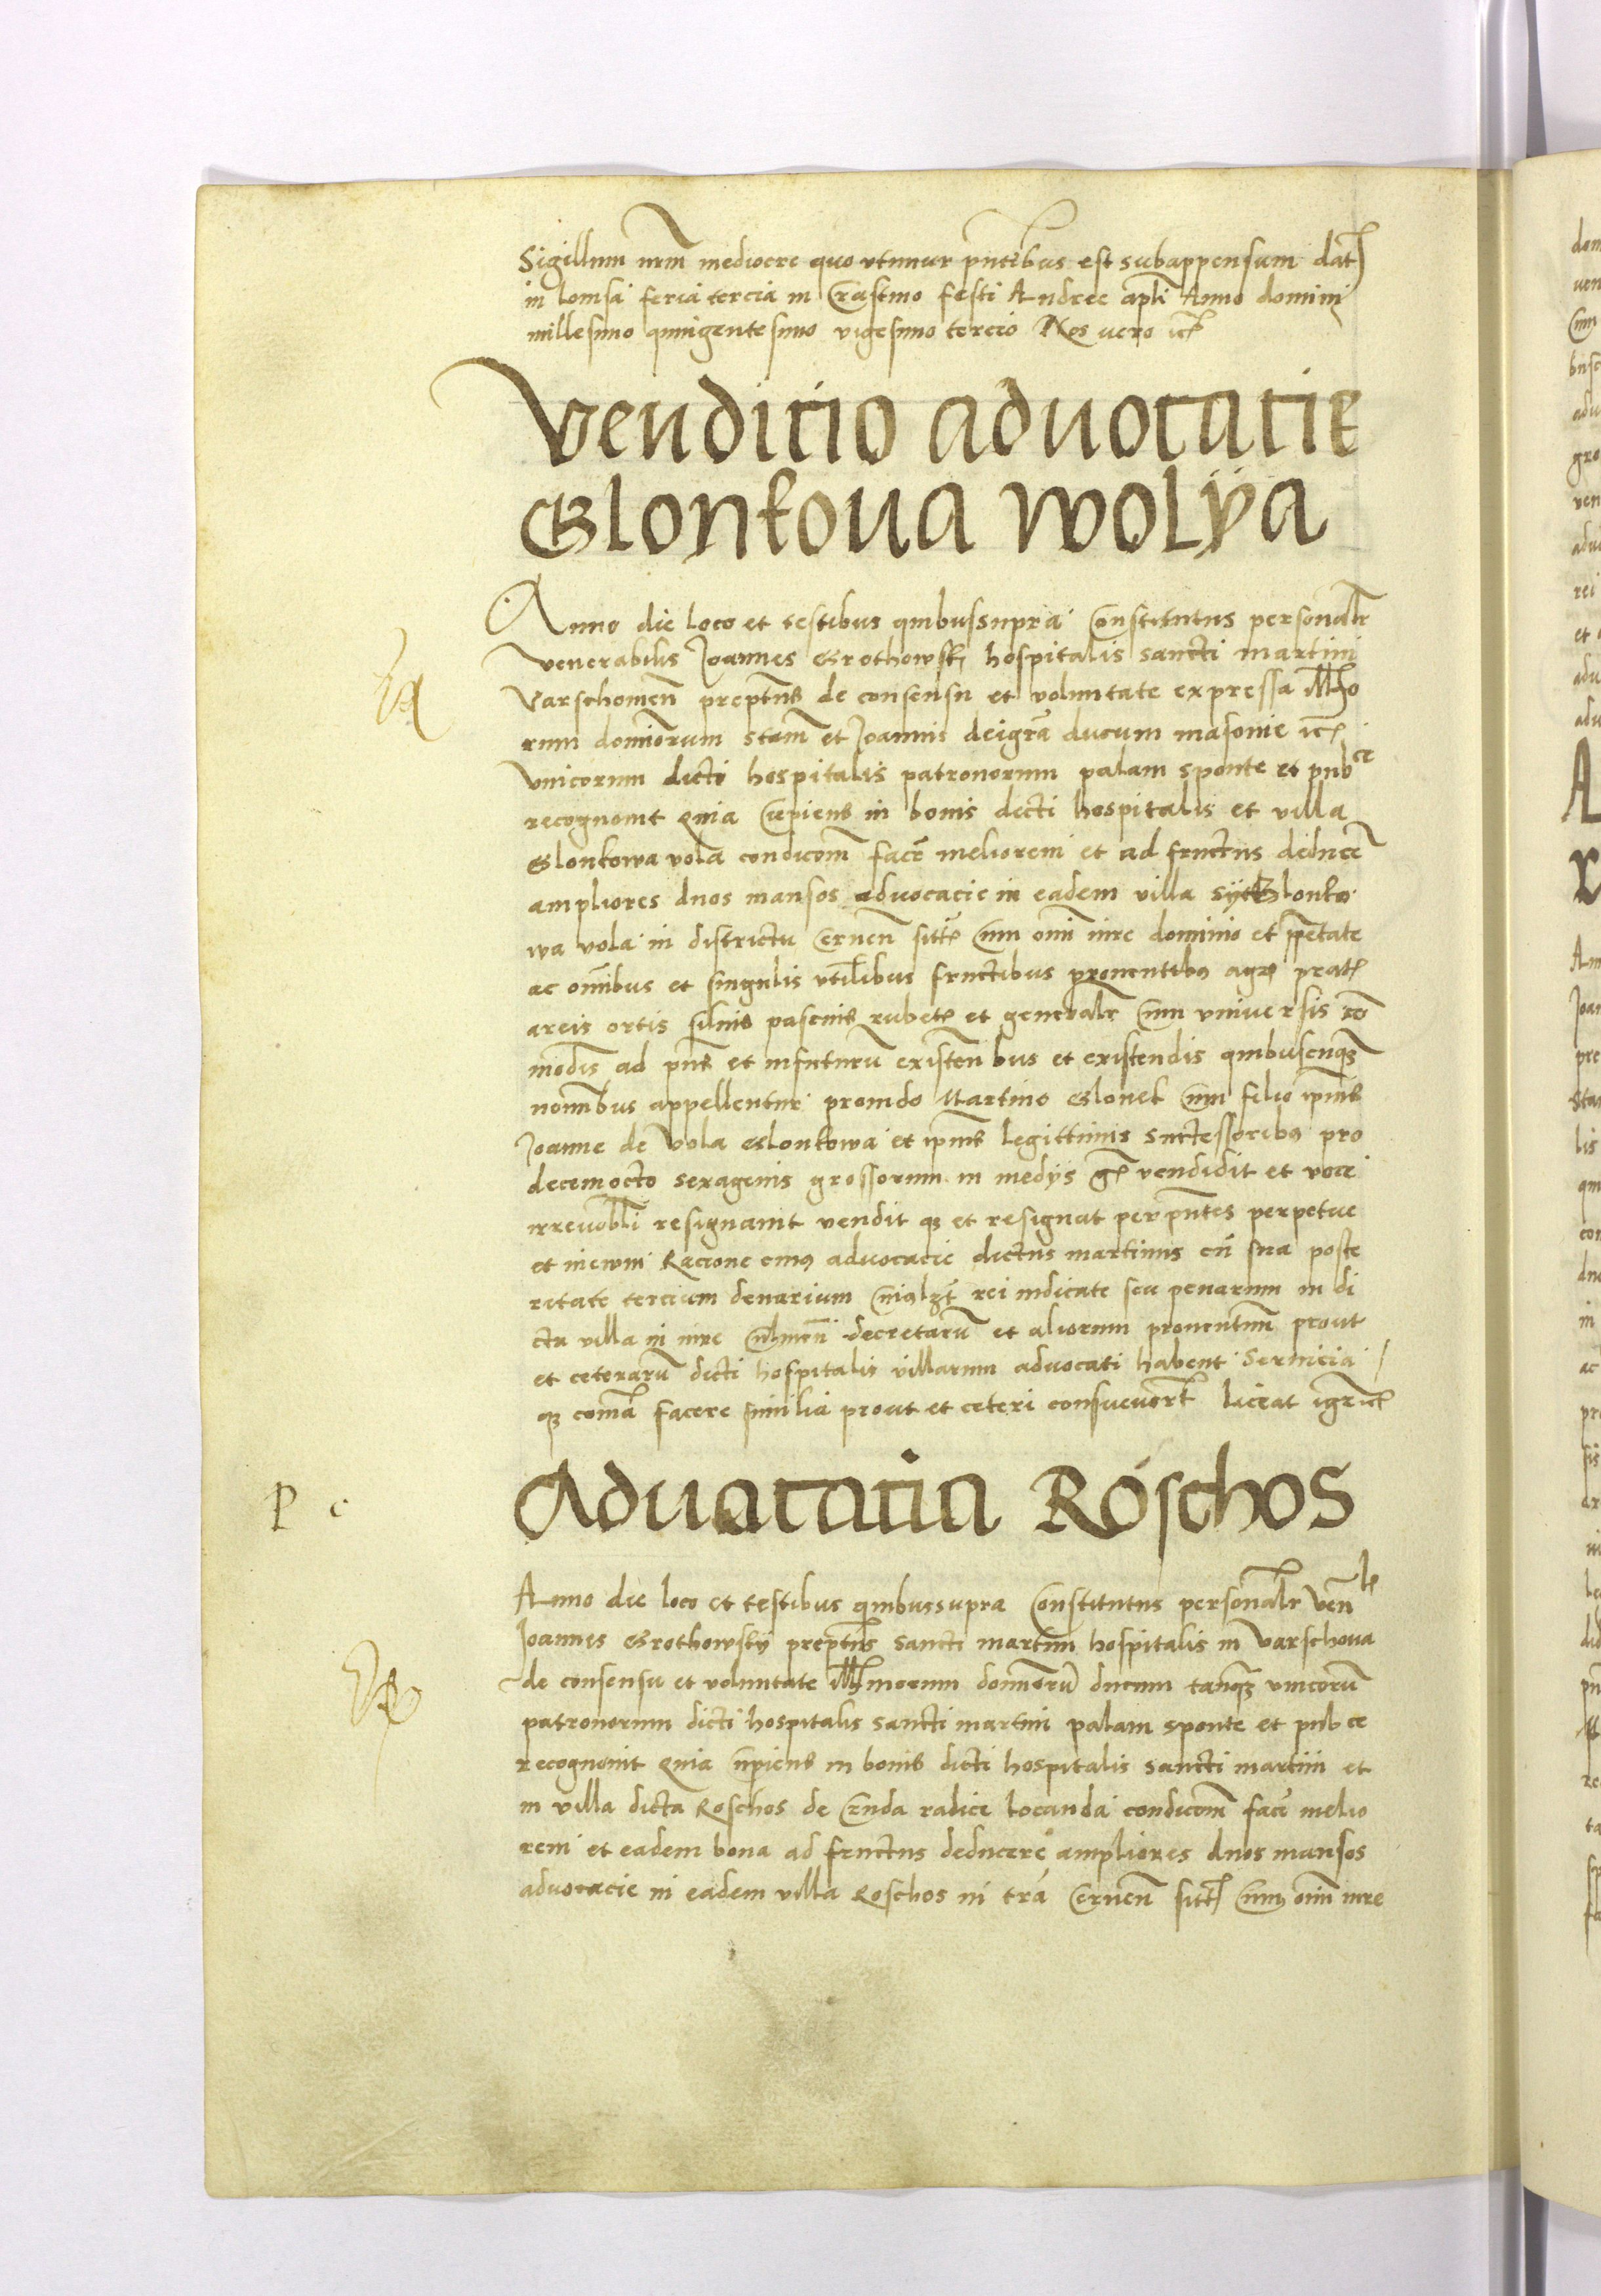 Sigillum nrm̄ mediocre quo vtimur pn̄tibus est subappensum dat̄
in lomsa feria tercia in Crastino festi Andree apl̄i Anno domini
millesimo quingentesimo vigesimo tercio Nos vero
Venditio advocatie
Glonkova wolÿa
Anno die loco et testibus quibussupra Constitutus personal̄r
venerabilis Joannes Grothowsky hospitalis sancti martini
Varschouien̄ prept̄us de consensu et voluntate expressa Ill̄mo
rum domiorum stan̄ et Joannis deigrā ducum masouie
vnicorum dicti hospitalis patronorum palam sponte et pub ce
recognouit quia cupiens in bonis dicti hospitalis et villa
Glonkowa vola condicom̄ facē meliorem et ad fructus deducē
ampliores duos mansos advocacie in eadem villa Glonko
wa vola in districtu Cernen̄ sitt̄ Cum om̄i iure dominio et ꝓetate
ac om̄ibus et singulis vtilibus fructibus prouentibꝯ agr̄ prat̄
areis ortis siluis pascuis rubet̄ et general̄r Cum vniuersis co
modis ad pn̄s et infuturū existen bus et existendis quibuscunqꝫ
nomībus appellentur prouido Martino Glonek Cum filio ip̄ius
Joanne de Vola Glonkowa et ip̄ius legittimis successoribꝯ pro
decemocto sexagenis grossorum in medÿs gr̄ vendidit et voce
irreuobl̄i resignauit vendit qꝫ et resignat per pn̄tes perpetue
et ineuum Racione cuiꝯ advocacie dictus martinus cū sua poste
ritate tercium denarium rei iudicate seu penarum in di
cta villa in iure decretarū et aliorum prouentuum prout
et ceterarū dicti hospitalis villarum advocati habent seruicia
qꝫ comā facere similia prout et ceteri consueuer̄t liceat igr̄
Advocatia Roschos
P c
Anno die loco et testibus quibussupra Constitutus personal̄r Ven̄ lis
Joannes Grothowskÿ prept̄us sancti martini hospitalis in Varschouia
de consensu et voluntate Ill̄morum domiorū ducum tanqꝫ vnicorū
patronorum dicti hospitalis sancti martini palam sponte et pub ce
recognouit quia cupiens in bonis dicti hospitalis sancti martini et
in villa dicta Roschos de Cruda radice locanda condicom̄ facē melio
rem et eadem bona ad fructus deducere ampliores duos mansos
advocacie in eadem villa Roschos in tr̄a Cernen̄ sitt̄ Cum om̄i iure